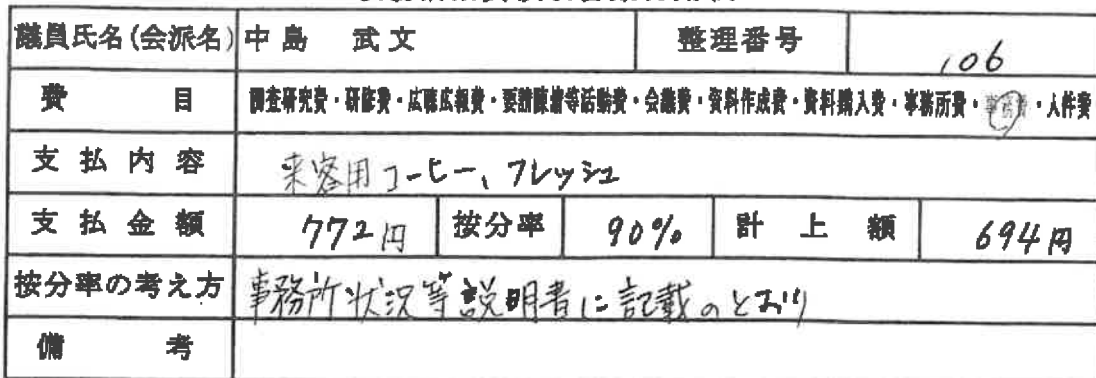 議員氏名(会派名) 中島 武文 整理番号 106
費目 調査研究費・研修費・広聴広報費・要請陳情等活動費・会議費・資料作成費・資料購入費・事務所費・事務費・人件費
支払内容 来客用コーヒー、フレッシュ
支払金額 772円 按分率 90% 計上額 694円
按分率の考え方 事務所状況等説明書に記載のとおり
備考